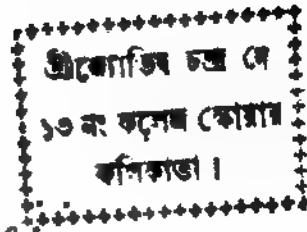 শ্রীজ্যোতিষ চন্দ্র দে
১৩ নং কলেজ স্কোয়ার
কলিকাতা।